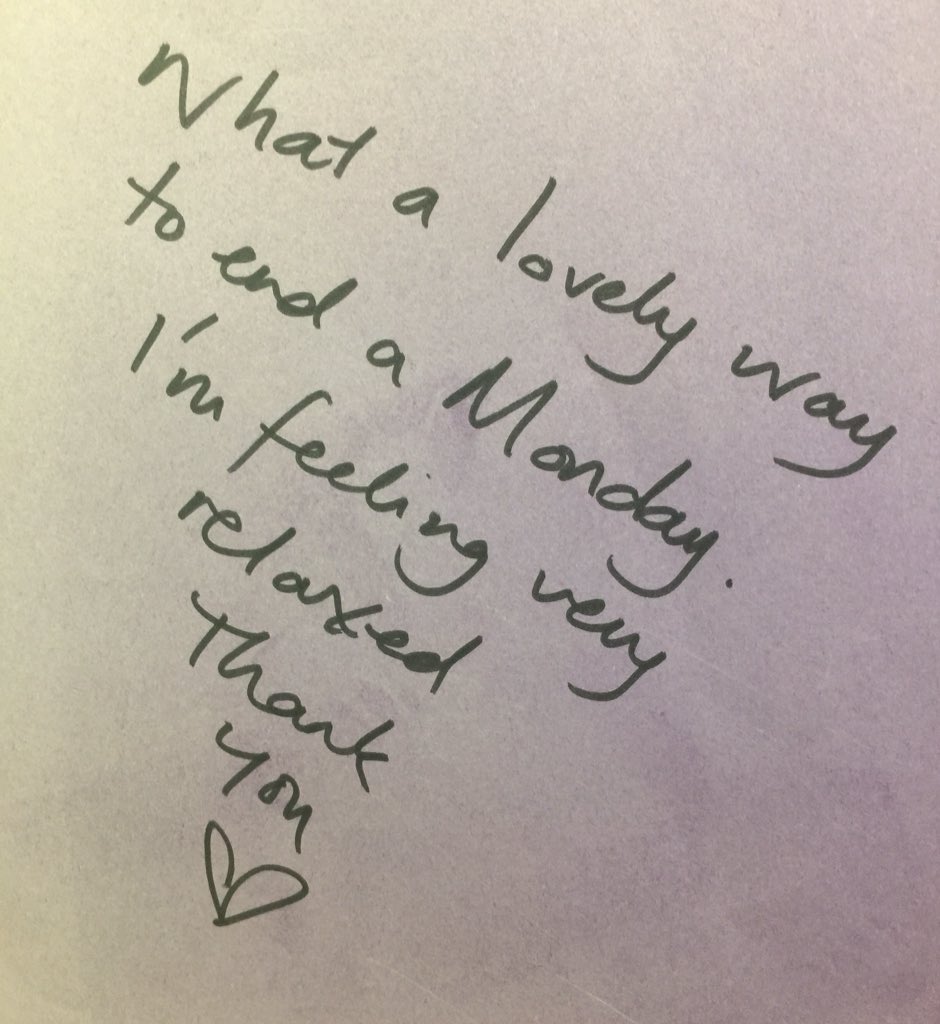 What a lovely way
to end a Monday.
I'm feeling very
relaxed
Thank
you